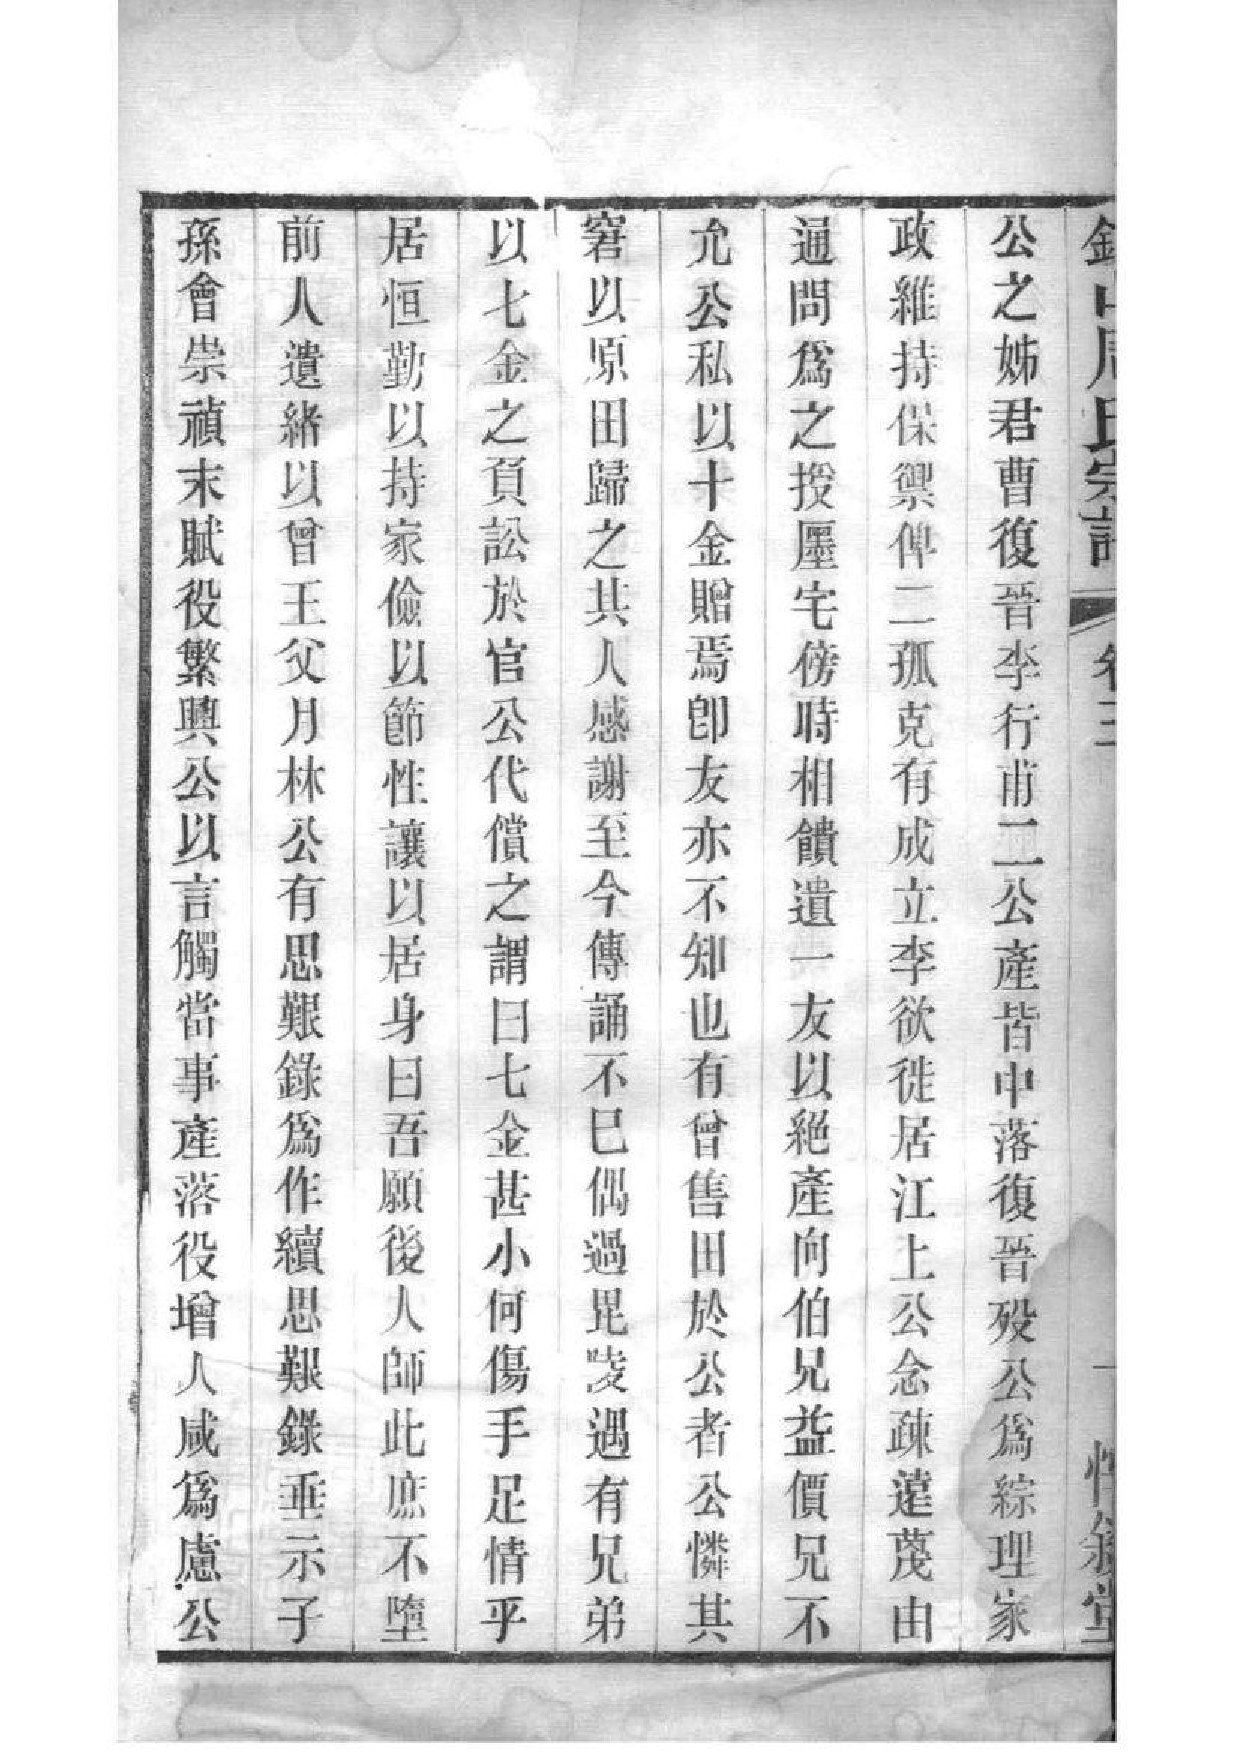 山周氏宗譜 卷三 惇敘堂
公之姊君曹復晉李行甫二公產皆中落復晉歿公爲綜理家
政維持保禦俾二孤克有成立李欲徙居江上公念疎遠蔑由
通問爲之授廛宅傍時相饋遺一友以絕產向伯兄益價兄不
允公私以十金贈焉卽友亦不知也有曾售田於公者公憐其
窘以原田歸之其人感謝至今傳誦不已偶過毘陵遇有兄弟
以七金之負訟於官公代償之謂曰七金甚小何傷手足情乎
居恒勤以持家儉以節性讓以居身曰吾願後人師此庶不墮
前人遺緒以曾王父月林公有思艱錄爲作續思艱錄垂示子
孫會崇禎末賦役繁興公以言觸當事產落役增人咸爲慮公